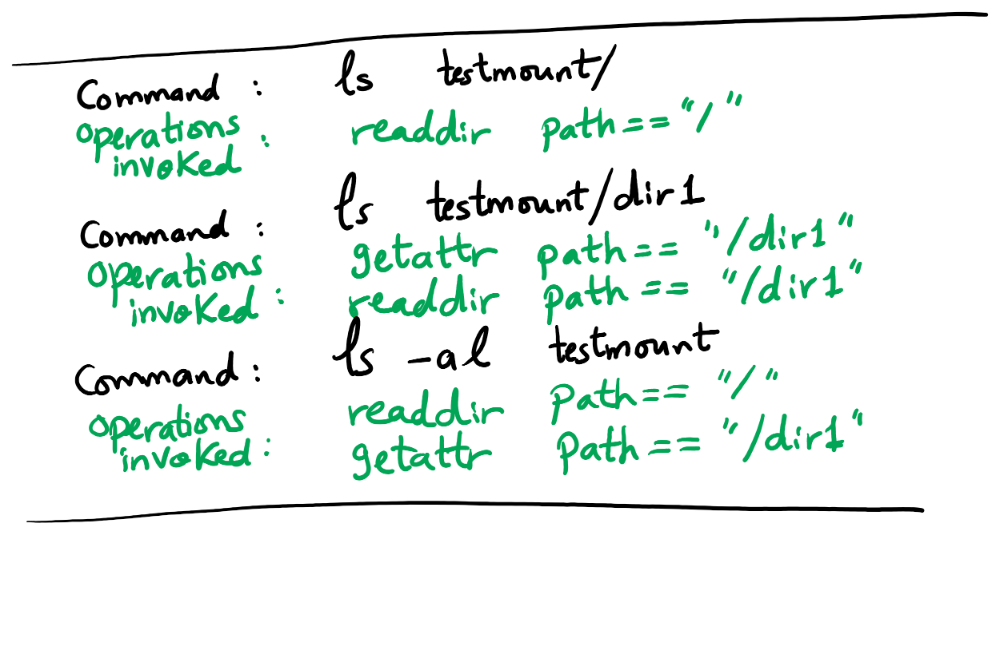 Command : ls testmount/
operations invoked : readdir path == "/"
Command : ls testmount/dir1
operations getattr path == "/dir1"
invoked : readdir path == "/dir1"
Command : ls -al testmount
operations readdir path == "/"
invoked : getattr path == "/dir1"